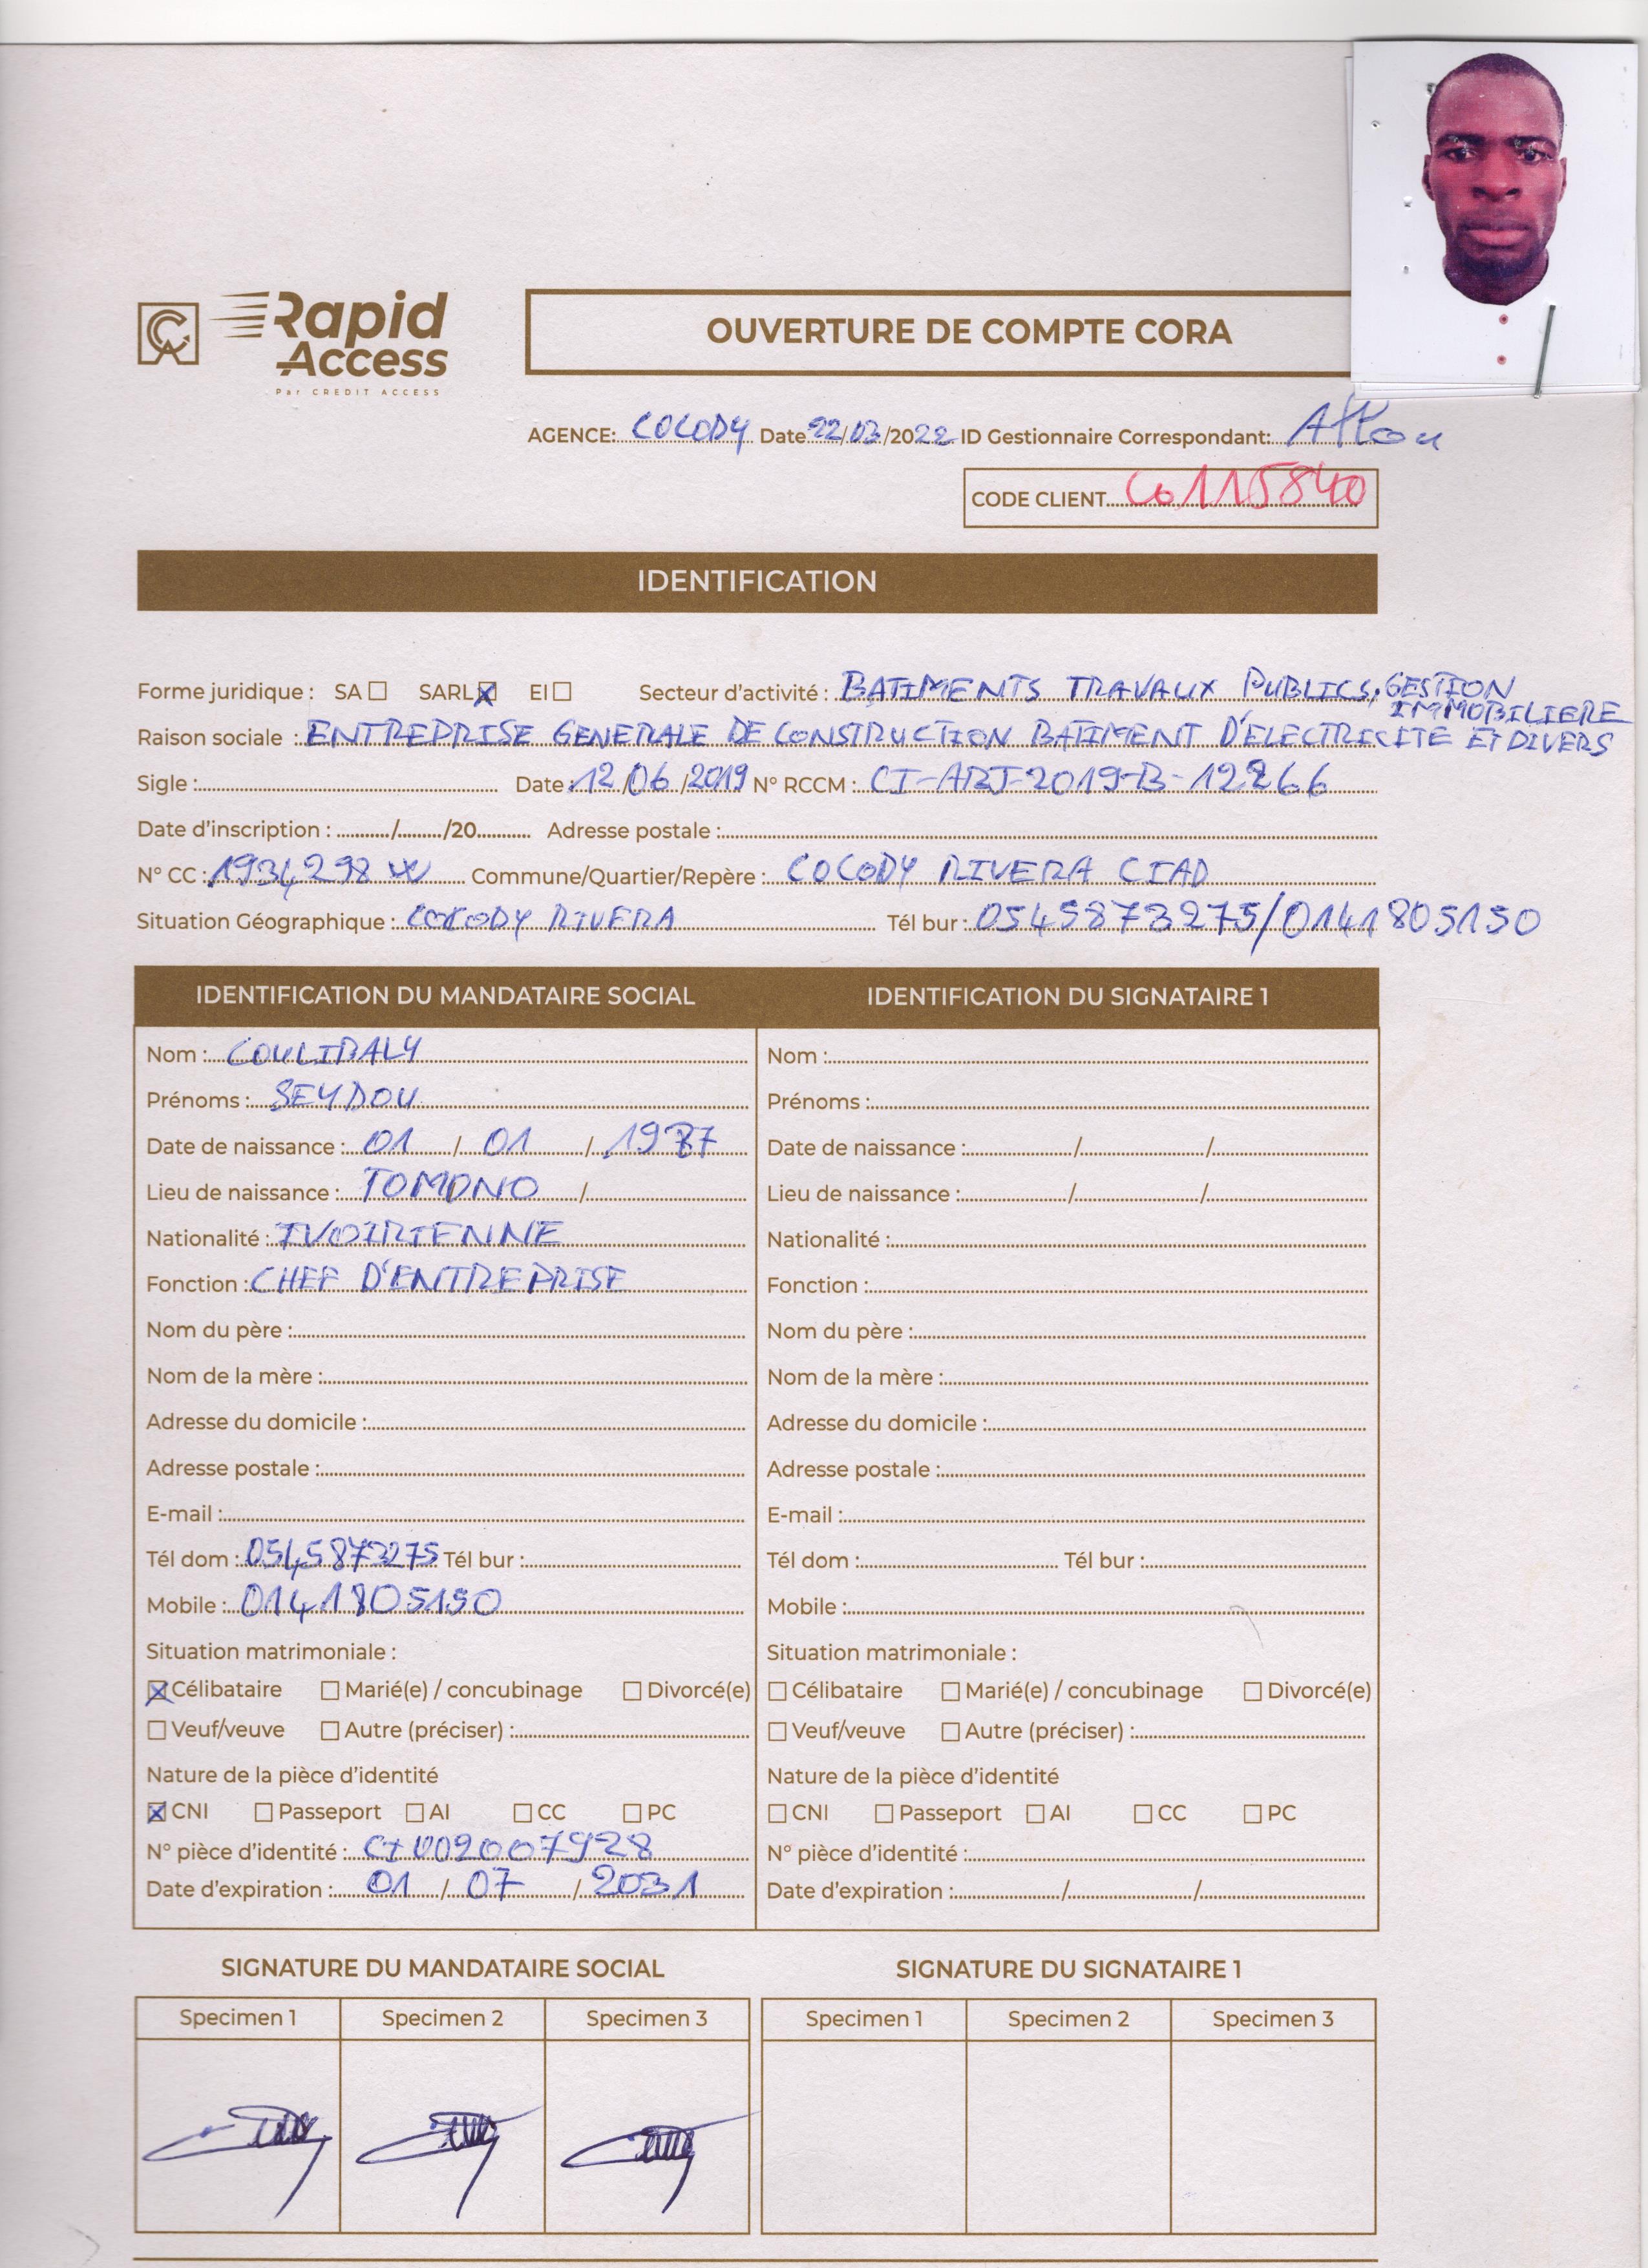 Rapid
Access
Par CREDIT ACCESS
OUVERTURE DE COMPTE CORA
AGENCE: COCODY Date 22/03/2022 ID Gestionnaire Correspondant:
CODE CLIENT Co115840
IDENTIFICATION
Forme juridique : SA SARL EI Secteur d'activité : BATIMENTS TRAVAUX PUBLICS, GESTION
IMMOBILIERE
Raison sociale : ENTREPRISE GENERALE DE CONSTRUCTION BATIMENT D'ELECTRICITE ET DIVERS
Sigle : Date : 12/06/2019 N° RCCM : CI-ABJ-2019-B-12266
Date d'inscription : / /20 Adresse postale :
N° CC : 1934298 W Commune/Quartier/Repère : COCODY RIVERA CIAD
Situation Géographique : COCODY RIVERA Tél bur : 0545873275/0141805150
IDENTIFICATION DU MANDATAIRE SOCIAL IDENTIFICATION DU SIGNATAIRE 1
Nom : COULIBALY Nom :
Prénoms : SEYDOU Prénoms :
Date de naissance : 01 / 01 / 1987 Date de naissance : / /
Lieu de naissance : TOMONO / Lieu de naissance : / /
Nationalité : IVOIRIENNE Nationalité :
Fonction : CHEF D'ENTREPRISE Fonction :
Nom du père : Nom du père :
Nom de la mère : Nom de la mère :
Adresse du domicile : Adresse du domicile :
Adresse postale : Adresse postale :
E-mail : E-mail :
Tél dom : 0545873275 Tél bur : Tél dom : Tél bur :
Mobile : 0141805150 Mobile :
Situation matrimoniale : Situation matrimoniale :
Célibataire Marié(e) / concubinage Divorcé(e) Célibataire Marié(e) / concubinage Divorcé(e)
Veuf/veuve Autre (préciser) : Veuf/veuve Autre (préciser) :
Nature de la pièce d'identité Nature de la pièce d'identité
CNI Passeport AI CC PC CNI Passeport AI CC PC
N° pièce d'identité : CI002007928 N° pièce d'identité :
Date d'expiration : 01 / 07 / 2031 Date d'expiration : / /
SIGNATURE DU MANDATAIRE SOCIAL SIGNATURE DU SIGNATAIRE 1
Specimen 1 Specimen 2 Specimen 3 Specimen 1 Specimen 2 Specimen 3